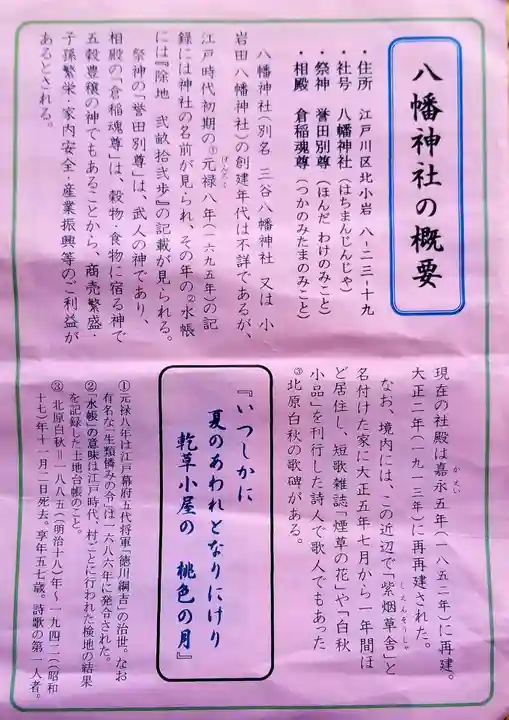 八幡神社の概要
・住所　江戸川区北小岩　八-二三-十九
・社号　八幡神社（はちまんじんじゃ）
・祭神　誉田別尊（ほんだ わけのみこと）
・相殿　倉稲魂尊（つかのみたまのみこと）
八幡神社（別名　三谷八幡神社　又は　小
岩田八幡神社）の創建年代は不詳であるが、
江戸時代初期の①元禄八年（一六九五年）の記
げんろく
録には神社の名前が見られ、その年の②水帳
には『除地　弐畝拾弐歩』の記載が見られる。
祭神の「誉田別尊」は、武人の神であり、
相殿の「倉稲魂尊」は、穀物・食物に宿る神で
五穀豊穣の神でもあることから、商売繁盛・
子孫繁栄・家内安全・産業振興等のご利益が
あるとされる。
現在の社殿は嘉永五年（一八五二年）に再建。
かえい
大正二年（一九一三年）に再再建された。
なお、境内には、この近辺で「紫烟草舎」と
しえんそうしゃ
名付けた家に大正五年七月から一年間ほ
ど居住し、短歌雑誌「煙草の花」や「白秋
小品」を刊行した詩人で歌人でもあった
③北原白秋の歌碑がある。
『いつしかに
夏のあわれとなりにけり
乾草小屋の　桃色の月』
①元禄八年は江戸幕府五代将軍「徳川綱吉」の治世。なお
有名な「生類憐みの令」は一六八六年に発令された。
②「水帳」の意味は江戸時代、村ごとに行われた検地の結果
を記録した土地台帳のこと。
③　北原白秋＝一八八五（明治十八）年～一九四二（昭和
十七）年十一月二日死去。享年五七歳。詩歌の第一人者。